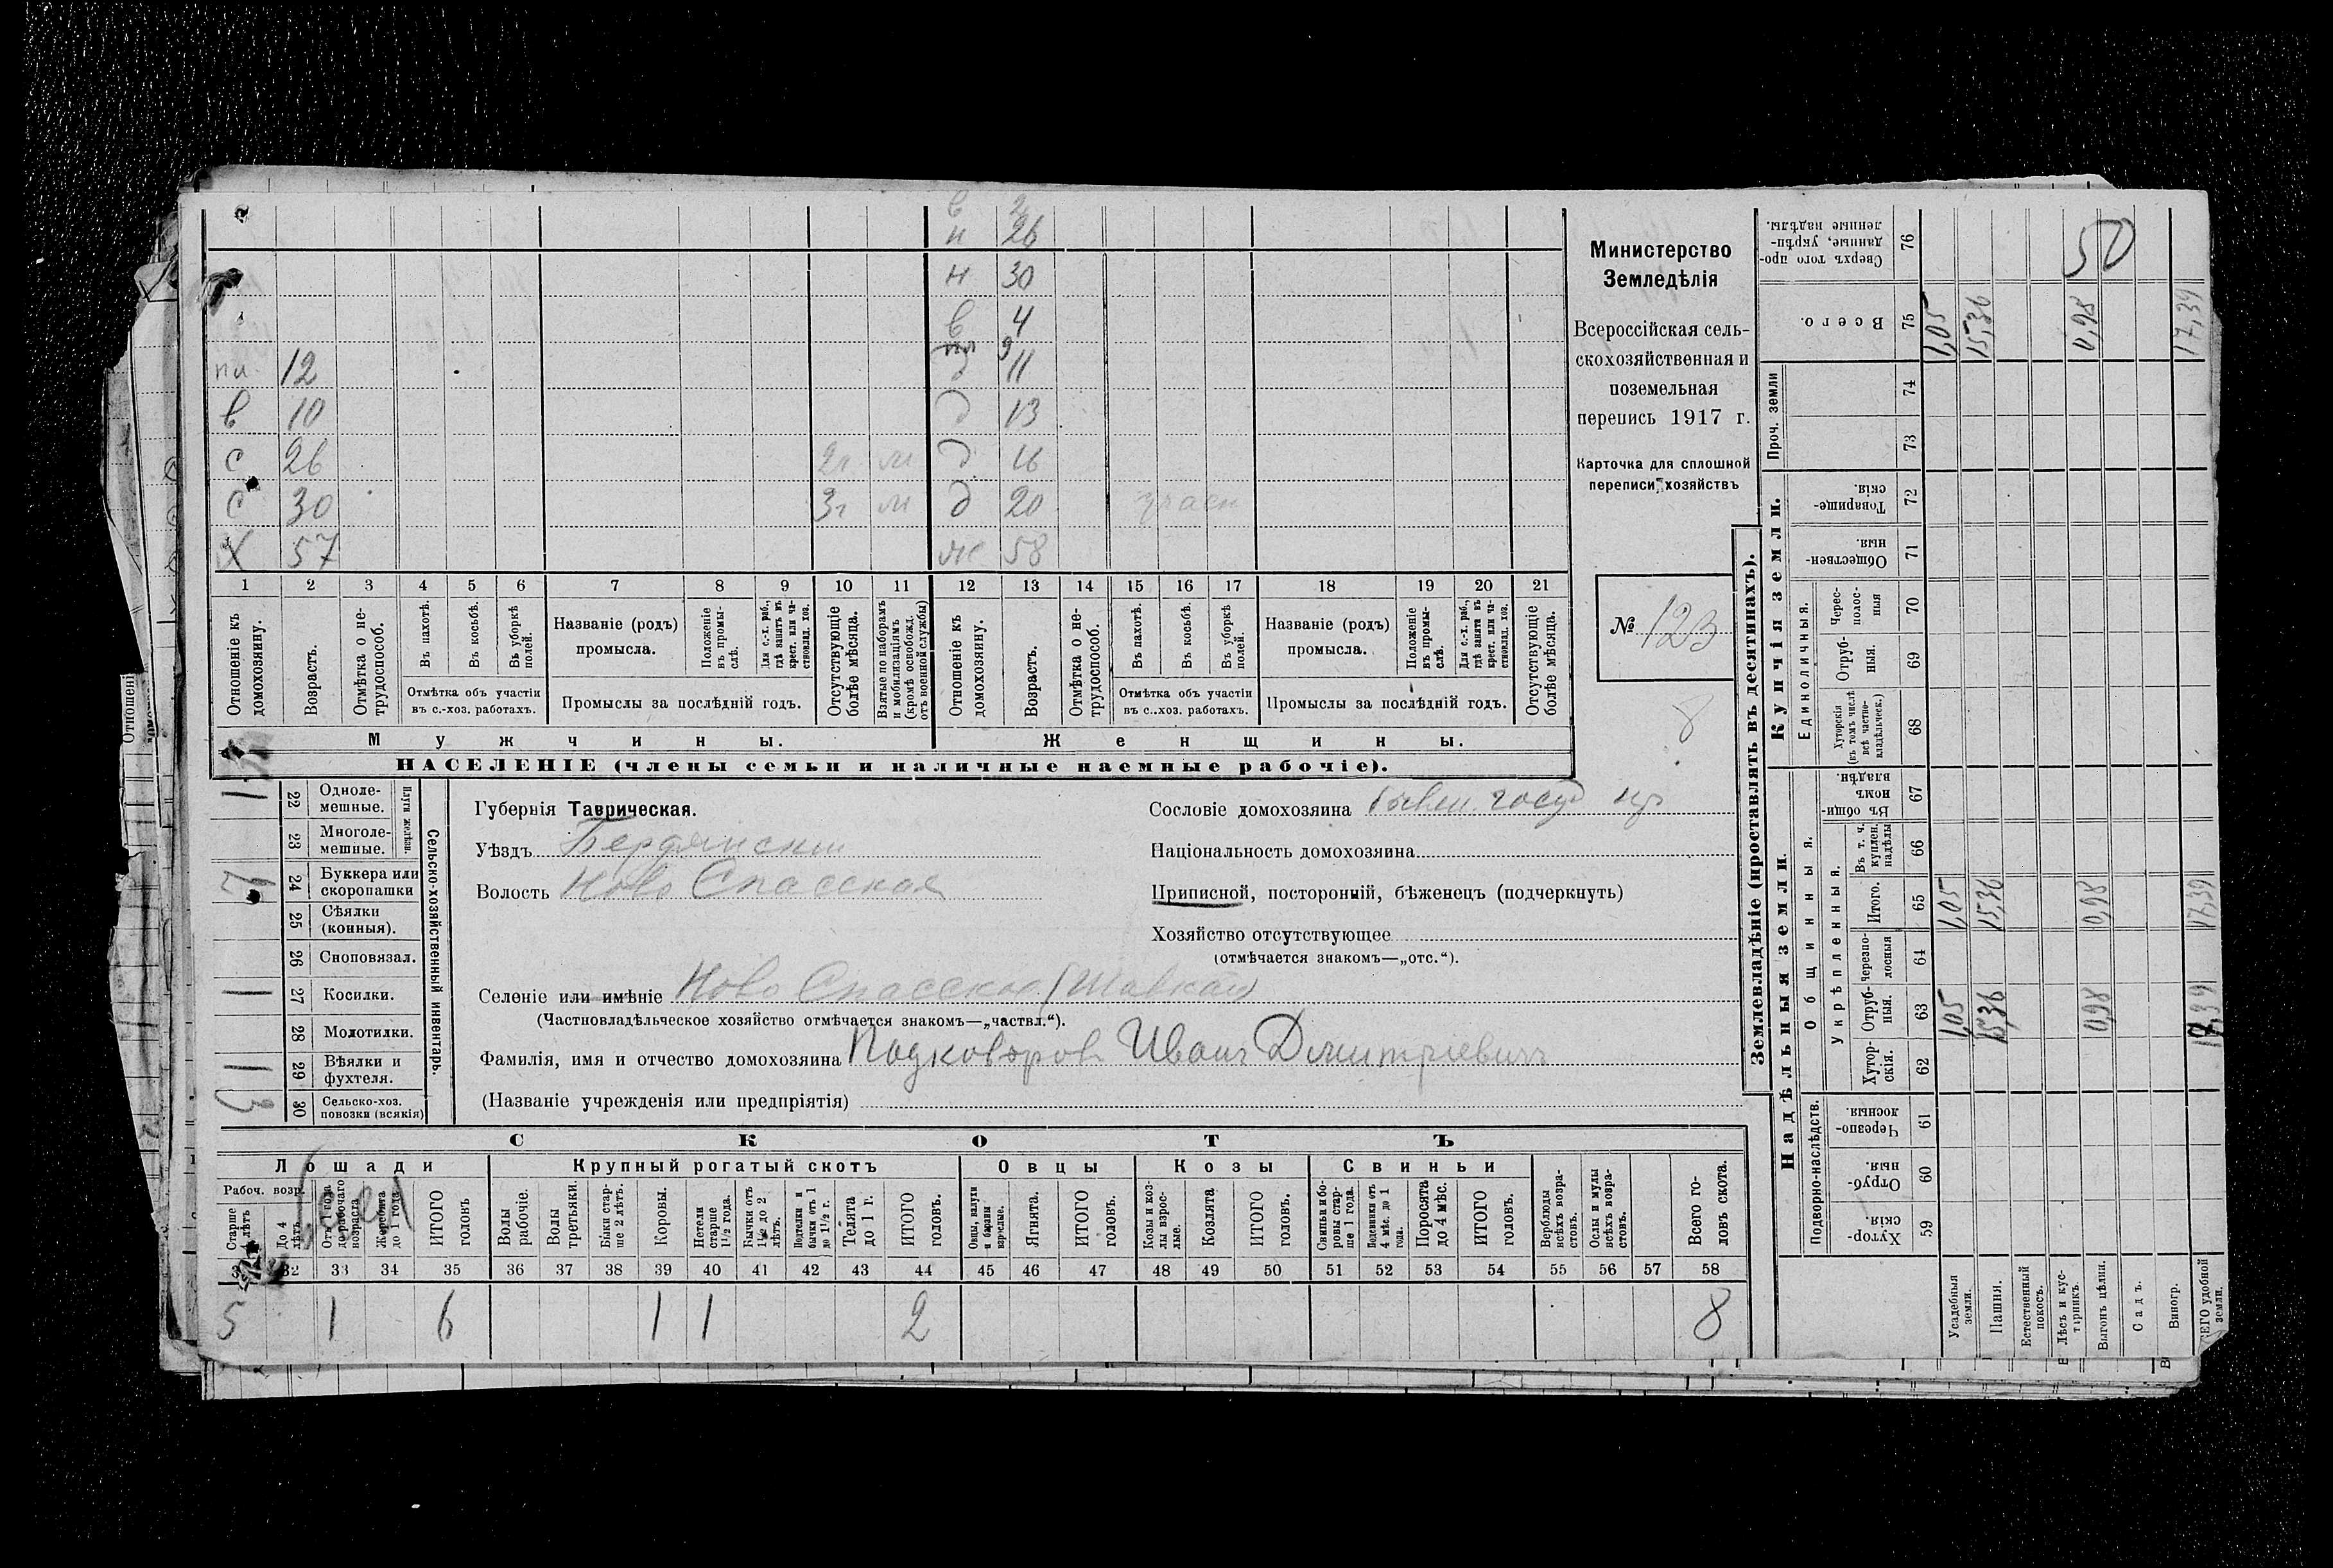 в 2
н 26
н 30
в 4
9
пл. 12 д 11
в 10 д 13
с 26 2г м д 16
с 30 3г м д 20
Х 57 ж 58
1 2 3 4 5 6 7 8 9 10 11 12 13 14 15 16 17 18 19 20 21
Отношеніе къ домохозяину.
Возрастъ.
Отмѣтка о нетрудоспособ.
Въ пахотѣ.
Въ косьбѣ.
Въ уборкѣ полей.
Отмѣтка объ участіи
въ с.-хоз. работахъ.
Названіе (родъ)
промысла.
Положеніе въ промыслѣ.
Для с.-х. раб., гдѣ занятъ въ крест. или частновлад. хоз.
Промыслы за послѣдній годъ.
Отсутствующіе болѣе мѣсяца.
Взятые по наборамъ и мобилизаціямъ (кромѣ освобожд. отъ военной службы)
Отношеніе къ домохозяину.
Возрастъ.
Отмѣтка о нетрудоспособ.
Въ пахотѣ.
Въ косьбѣ.
Въ уборкѣ полей.
Отмѣтка объ участіи
въ с..хоз. работахъ.
Названіе (родъ)
промысла.
Положеніе въ промыслѣ.
Для с.-х. раб., гдѣ занята въ крест. или частновлад. хоз.
Промыслы за послѣдній годъ.
Отсутствующіе болѣе мѣсяца.
Мужчины. Женщины.
НАСЕЛЕНІЕ (члены семьи и наличные наемные рабочіе).
Министерство
Земледѣлія
Всероссійская сель-
скохозяйственная и
поземельная
перепись 1917 г.
Карточка для сплошной
переписи хозяйствъ
№ 123
8
Сельско-хозяйственный инвентарь.
Плуги желѣзн.
22 Одноле-
мешные.
1
23 Многоле-
мешные.
24 Буккера или
скоропашки
25 Сѣялки
(конныя).
26 Сноповязал.
27 Косилки.
1
28 Молотилки.
29 Вѣялки и
фухтеля.
1
30 Сельско-хоз.
повозки (всякія)
3
Губернія Таврическая.
Уѣздъ Бердянскій
Волость Ново Спасская
Сословіе домохозяина госуд
Національность домохозяина
Приписной, посторонній, бѣженецъ (подчеркнуть)
Хозяйство отсутствующее
(отмѣчается знакомъ—„отс.“).
Селеніе или имѣніе Ново Спасское
(Частновладѣльческое хозяйство отмѣчается знакомъ—„частвл.“).
Фамилія, имя и отчество домохозяина Подковыровъ Иванъ Дмитріевичъ
(Названіе учрежденія или предпріятія)
СКОТЪ
Лошади Крупный рогатый скотъ Овцы Козы Свиньи
Рабоч. возр.
Старше лѣтъ
До 4 лѣтъ
Отъ 1 года до рабочаго возраста
Жеребята до 1 года
ИТОГО головъ
Волы рабочіе.
Волы третьяки.
Быки старше 2 лѣтъ.
Коровы.
Нетели старше 1½ года.
Бычки отъ 1½ до 2 лѣтъ.
Подтелки и бычки отъ 1 до 1½ г.
Телята до 1 г.
ИТОГО головъ.
Овцы, валухи и бараны взрослые.
Ягнята.
ИТОГО головъ.
Козы и козлы взрослые.
Козлята
ИТОГО головъ.
Свиньи и боровы старше 1 года.
Подсвинки отъ 4 мѣс. до 1 года.
Поросята до 4 мѣс.
ИТОГО головъ.
Верблюды всѣхъ возрастовъ.
Ослы и мулы всѣхъ возрастовъ.
Всего головъ скота.
32 33 34 35 36 37 38 39 40 41 42 43 44 45 46 47 48 49 50 51 52 53 54 55 56 57 58
5 1 6 1 1 2 8
Землевладѣніе (проставлять въ десятинахъ).
Купчія земли.
Надѣльныя земли.
Сверхъ того проданные, укрѣпленные надѣлы. 76
50
Всего. 75
1,05 15,36 0,98 17,39
Проч. земли
74
73
Товарищескія. 72
Общественныя. 71
Единоличныя.
Чересполосныя 70
Отрубныя. 69
Хуторскія (въ томъ числѣ всѣ частновладѣльческ.) 68
Общинныя.
Въ общинномъ владѣн. 67
Укрѣпленныя.
Въ т. ч. куплен. надѣлы 66
Итого. 65
1,05 15,36 0,98 17,39
Черезполосныя 64
Отрубныя. 63
1,05 15,36 0,98 17,39
Хуторскія. 62
Подворно-наслѣдств.
Черезполосныя. 61
Отрубныя. 60
Хуторскія. 59
Усадебныя земли.
Пашня.
Естественный покосъ.
Лѣсъ и кустарникъ.
Выгонъ цѣлин.
Садъ.
Виногр.
ВСЕГО удобной земли.